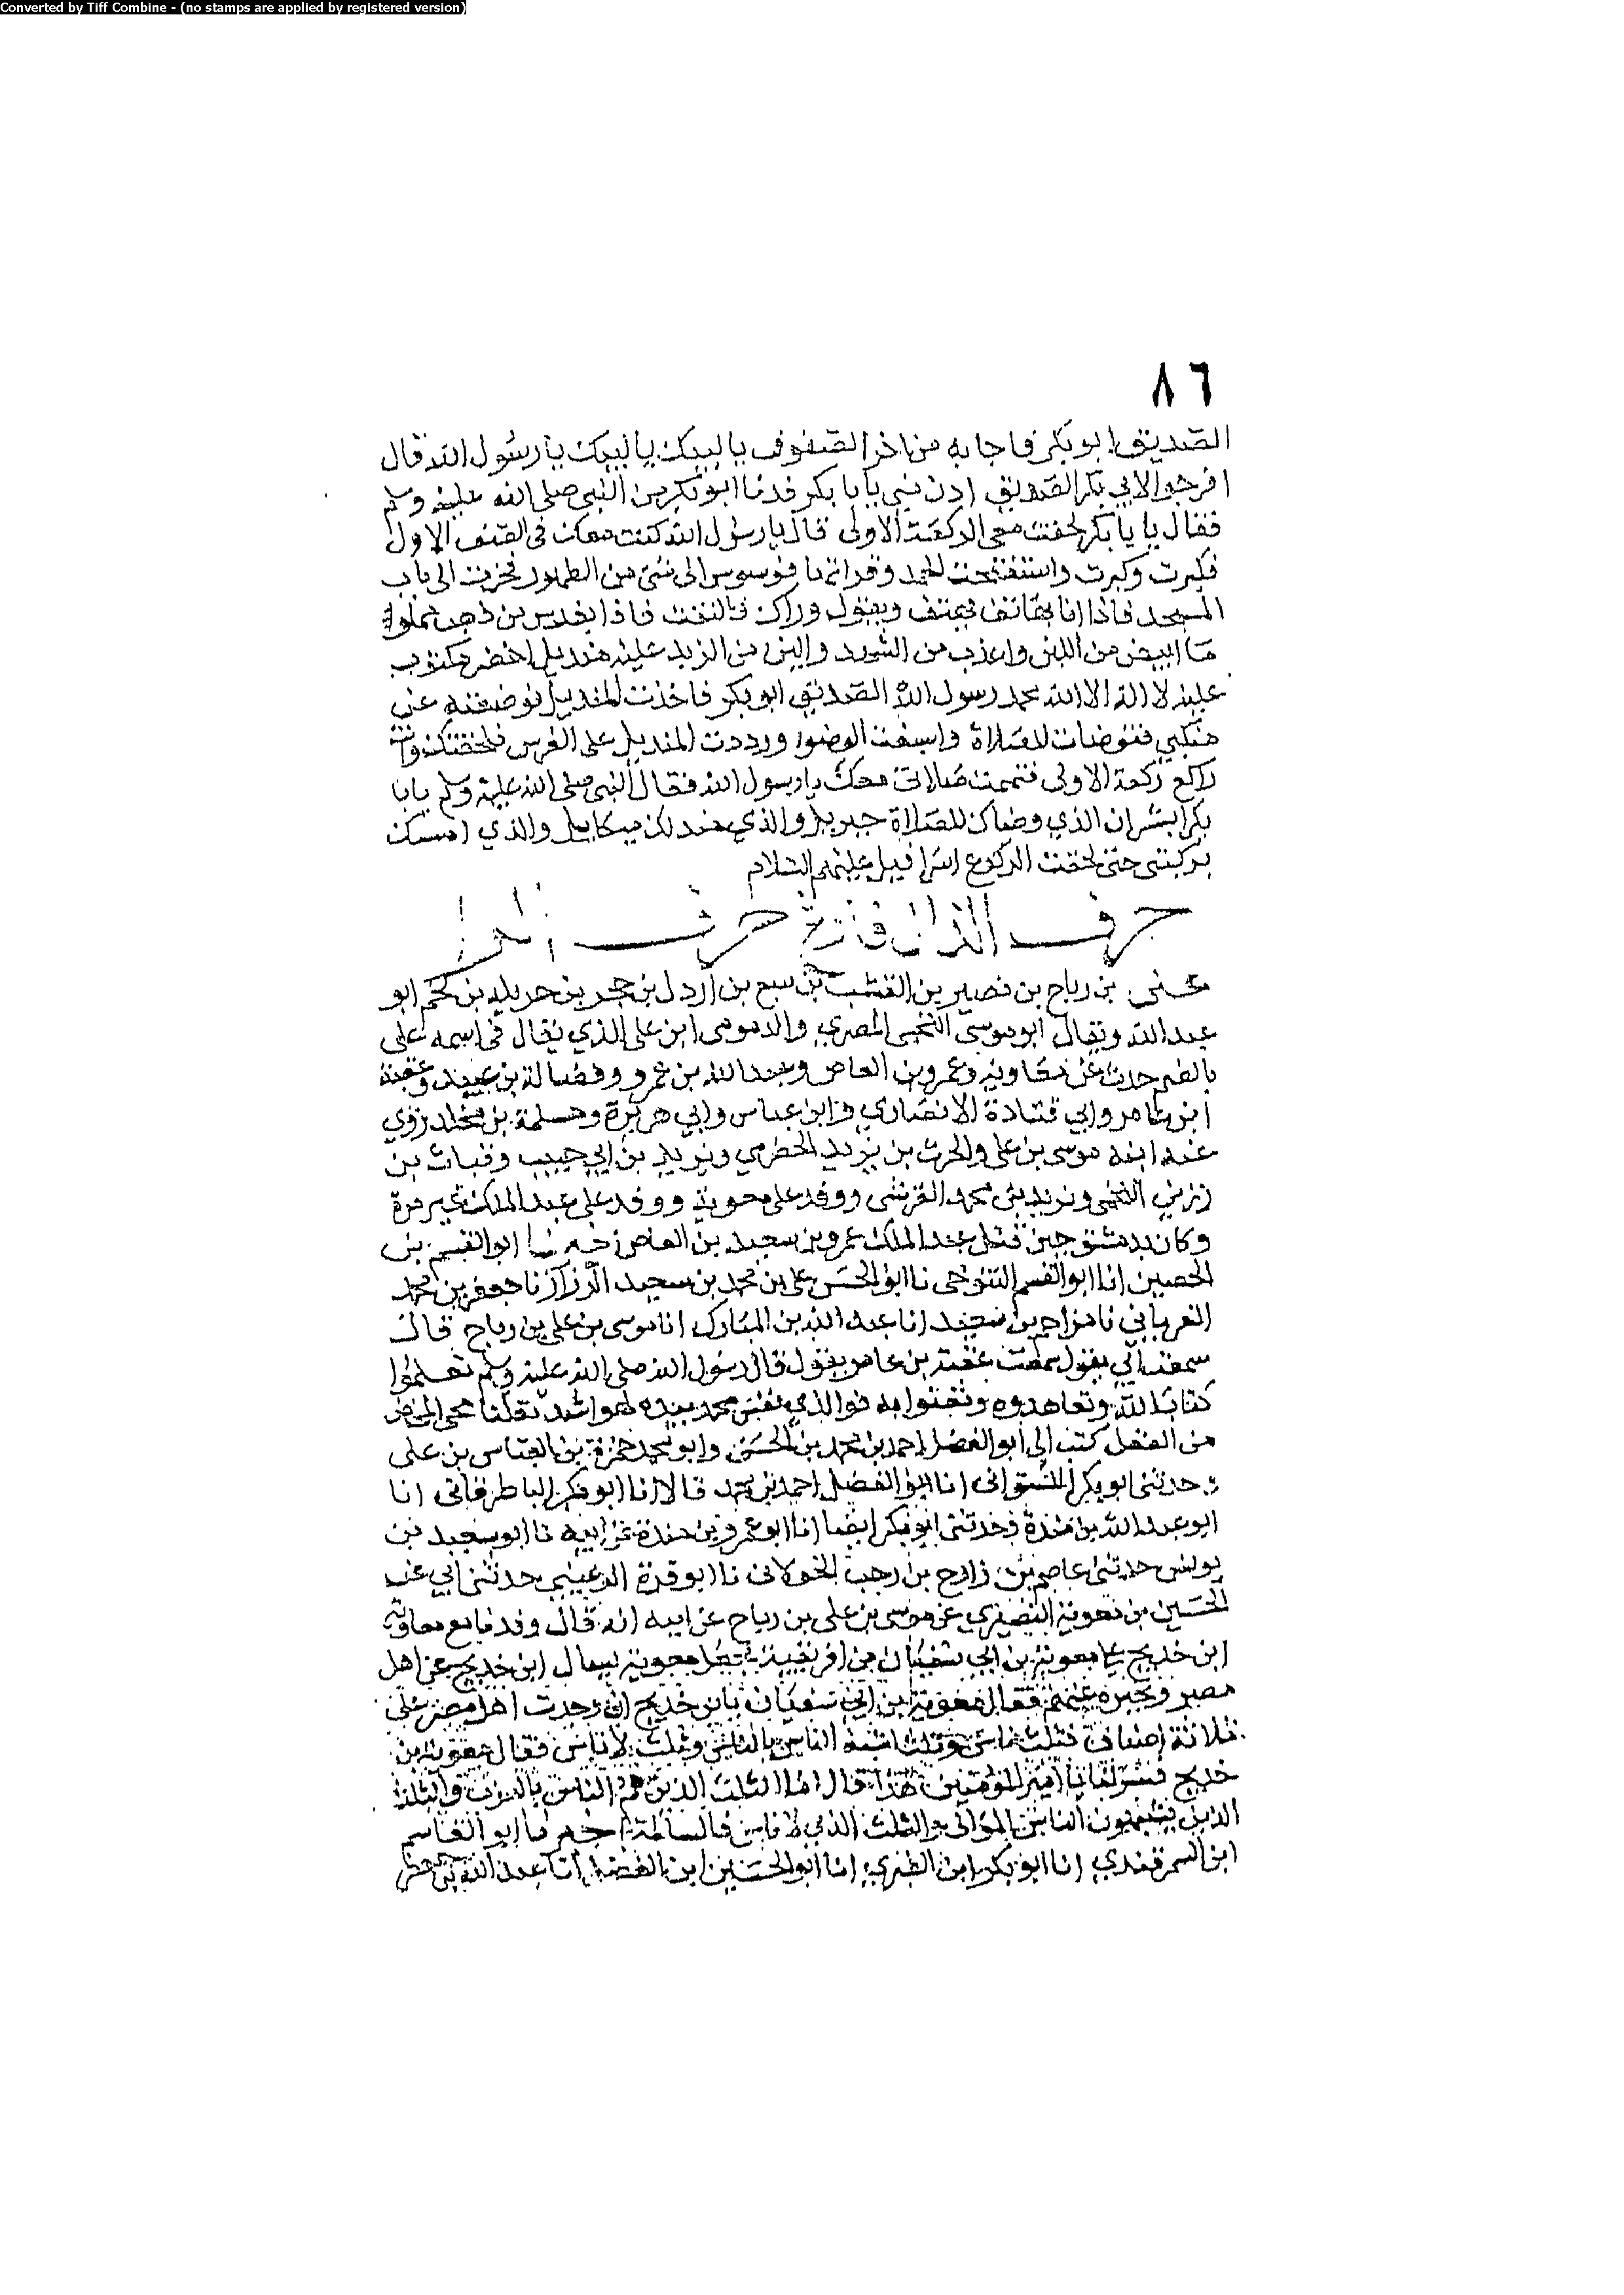 Converted by Tiff Combine - (no stamps are applied by registered version)
٨٦
الصديق ابو بكر فاجابه من اخر الصفوف يا لبيك يا لبيك يا رسول الله قال
افرجوا لابي بكر الصديق ادن مني يا با بكر فدنا ابو بكر من النبي صلى الله عليه وسلم
فقال يا با بكر لحقت معي الركعة الاولى قال يا رسول الله كنت معك في الصف الاول
فكبرت وكبرت واستفتحت الحمد وقراتها فوسوس الي شي من الطهور فخرجت الى باب
المسجد فاذا انا بهاتف يهتف ويقول وراك فالتفت فاذا بقدس من ذهب مملوا
ما ابيض من اللبن واعذب من الشهد والين من الزبد عليه منديل اخضر مكتوب
عليه لا اله الا الله محمد رسول الله الصديق ابو بكر فاخذت المنديل فوضعته على
منكبي فتوضات للصلاة واسبغت الوضوا ورددت المنديل على القدس ولحقتك وانت
راكع ركعة الاولى فتممت صلاتي معك يا رسول الله فقال النبي صلى الله عليه وسلم يا با
بكر ابشر ان الذي وضاك للصلاة جبريل والذي مندلك ميكاييل والذي امسك
بركبتي حتى لحقت الركوع اسرافيل عليهم السلام
حرف الذال فارغ حرف الرا
علي بن رباح بن قصير بن القشب بن سبع بن اردل بن حجر بن جديلة بن لخم ابو
عبد الله ويقال ابو موسى اللخمي المصري والد موسى ابن علي الذي يقال في اسمه علي
بالضم حدث عن معاوية وعمرو بن العاص وعبد الله بن عمرو وفضالة بن عبيد وعقبة
ابن عامر وابي قتادة الانصاري وابن عباس وابي هريرة ومسلمة بن مخلد روي
عنه ابنه موسى بن علي والحرث بن يزيد الحضرمي ويزيد بن ابي حبيب وقباث بن
رزين اللخمي ويزيد بن محمد القرشي ووفد على معوية ووفد على عبد الملك غير مرة
وكان بدمشق حين قتل عبد الملك عمرو بن سعيد بن العاص اخبرنا ابو القسم بن
الحصين انا ابو القسم التنوخي نا ابو الحسن علي بن محمد بن سعيد الرزاز نا جعفر بن محمد
الفريابي نا مزاحم بن سعيد انا عبد الله بن المبارك انا موسى بن علي بن رباح قال
سمعت ابي يقول سمعت عقبة بن عامر يقول قال رسول الله صلى الله عليه وسلم تعلموا
كتاب الله وتعاهدوه وتغنوا به فوالذي نفس محمد بيده لهو اشد تفلتا من المخاض
من العقل كتب الي ابو الفضل احمد بن محمد بن الحسن وابو محمد حمزة بن العباس بن علي
وحدثني ابو بكر اللفتواني انا ابو الفضل احمد بن محمد قالا انا ابو بكر الباطرقاني انا
ابو عبد الله بن مندة وحدثني ابو بكر ايضا انا ابو عمرو بن مندة عن ابيه نا ابو سعيد بن
يونس حدثني عاصم بن رازح بن رحب الخولاني نا ابو قرة الرعيني حدثني ابي عن
الحسين بن معوية النصيري عن موسى بن علي بن رباح عن ابيه انه قال وفدنا مع معاوية
ابن خديج على معوية بن ابي سفيان من افريقية فجعل معوية يسال ابن خديج عن اهل
مصر ويخبره عنهم فقال معوية بن ابي سفيان يابن خديج اني وجدت اهل مصر على
ثلاثة اصناف فثلث ناس وثلث اشبه الناس بالناس وثلث لا ناس فقال معوية بن
خديج فسر لنا يا امير المومنين هذا قال اما الثلث الذين هم الناس فالعرب والثلث
الذين يشبهون الناس الموالي والثلث الذي لا ناس فالمسالمة اخبرنا ابو القاسم
ابن السمرقندي انا ابو بكر ابن الطبري انا ابو الحسين ابن الفضل انا عبد الله بن جعفر